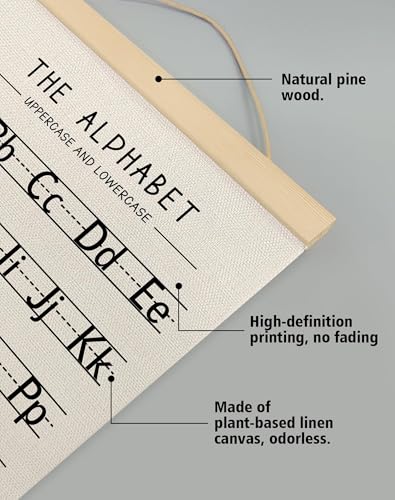 THE ALPHABET
UPPERCASE AND LOWERCASE
Bb Cc Dd Ee
Ii Jj Kk
Pp
Natural pine
wood.
High-definition
printing, no fading
Made of
plant-based linen
canvas, odorless.